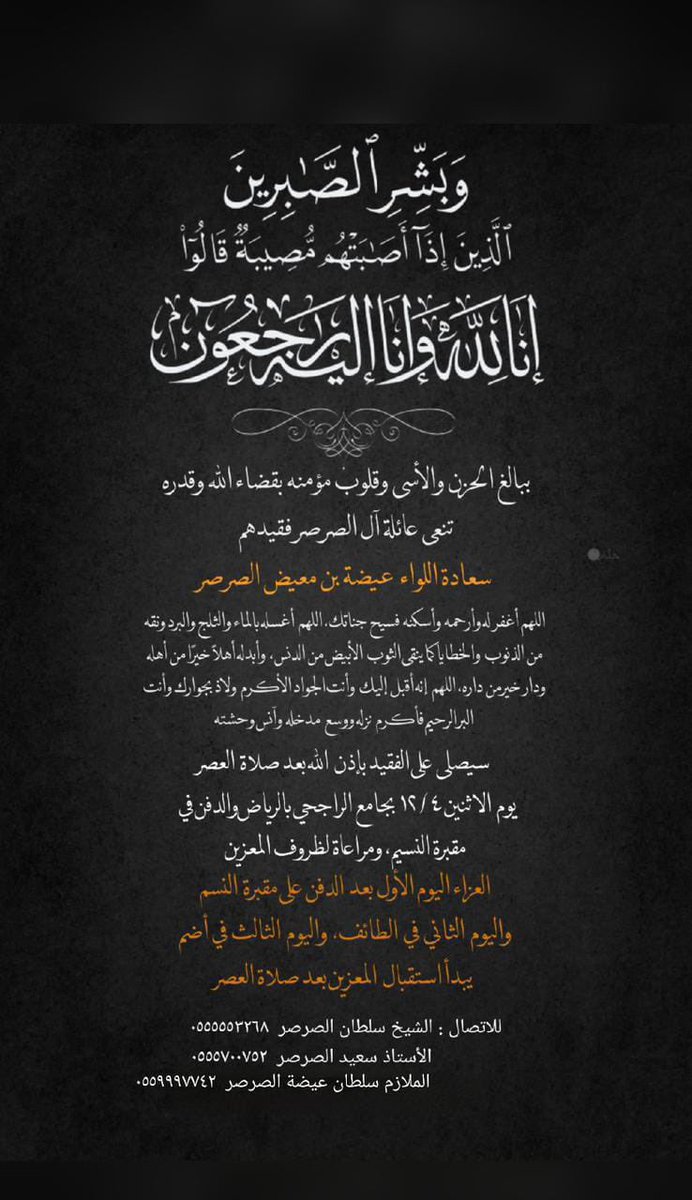 وَبَشِّرِ ٱلصَّٰبِرِينَ
ٱلَّذِينَ إِذَآ أَصَٰبَتْهُم مُّصِيبَةٌ قَالُوٓا۟
إنا لله وإنا إليه راجعون
ببالغ الحزن والأسى وقلوب مؤمنه بقضاء الله وقدره
تنعى عائلة آل الصرصر فقيدهم
سعادة اللواء عيضة بن معيض الصرصر
اللهم أغفر له وأرحمه وأسكنه فسيح جناتك، اللهم أغسله بالماء والثلج والبرد ونقه
من الذنوب والخطايا كما ينقى الثوب الأبيض من الدنس، وأبدله أهلاً خيرًا من أهله
ودار خير من داره، اللهم إنه أقبل إليك وأنت الجواد الأكرم ولاذ بجوارك وأنت
البر الرحيم فأكرم نزله ووسع مدخله وآنس وحشته
سيصلى على الفقيد بإذن الله بعد صلاة العصر
يوم الاثنين ٤ / ١٢ بجامع الراجحي بالرياض والدفن في
مقبرة النسيم، ومراعاة لظروف المعزين
العزاء اليوم الأول بعد الدفن على مقبرة النسم
واليوم الثاني في الطائف، واليوم الثالث في أضم
يبدأ استقبال المعزين بعد صلاة العصر
للاتصال : الشيخ سلطان الصرصر ٠٥٥٥٥٥٣٢٦٨
الأستاذ سعيد الصرصر ٠٥٥٥٧٠٠٧٥٢
الملازم سلطان عيضة الصرصر ٠٥٥٩٩٩٧٧٤٢